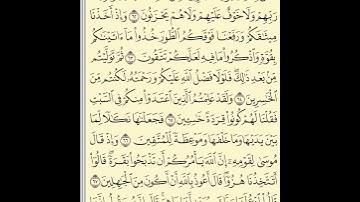 رَبِّهِمْ وَلَا خَوْفٌ عَلَيْهِمْ وَلَا هُمْ يَحْزَنُونَ ٦٢ وَإِذْ أَخَذْنَا
مِيثَـٰقَكُمْ وَرَفَعْنَا فَوْقَكُمُ ٱلطُّورَ خُذُوا۟ مَآ ءَاتَيْنَـٰكُم
بِقُوَّةٍ وَٱذْكُرُوا۟ مَا فِيهِ لَعَلَّكُمْ تَتَّقُونَ ٦٣ ثُمَّ تَوَلَّيْتُم
مِّنۢ بَعْدِ ذَٰلِكَ فَلَوْلَا فَضْلُ ٱللَّهِ عَلَيْكُمْ وَرَحْمَتُهُۥ لَكُنتُم مِّنَ
ٱلْخَـٰسِرِينَ ٦٤ وَلَقَدْ عَلِمْتُمُ ٱلَّذِينَ ٱعْتَدَوْا۟ مِنكُمْ فِى ٱلسَّبْتِ
فَقُلْنَا لَهُمْ كُونُوا۟ قِرَدَةً خَـٰسِـِٔينَ ٦٥ فَجَعَلْنَـٰهَا نَكَـٰلًا لِّمَا
بَيْنَ يَدَيْهَا وَمَا خَلْفَهَا وَمَوْعِظَةً لِّلْمُتَّقِينَ ٦٦ وَإِذْ قَالَ
مُوسَىٰ لِقَوْمِهِۦٓ إِنَّ ٱللَّهَ يَأْمُرُكُمْ أَن تَذْبَحُوا۟ بَقَرَةً قَالُوٓا۟
أَتَتَّخِذُنَا هُزُوًا قَالَ أَعُوذُ بِٱللَّهِ أَنْ أَكُونَ مِنَ ٱلْجَـٰهِلِينَ ٦٧